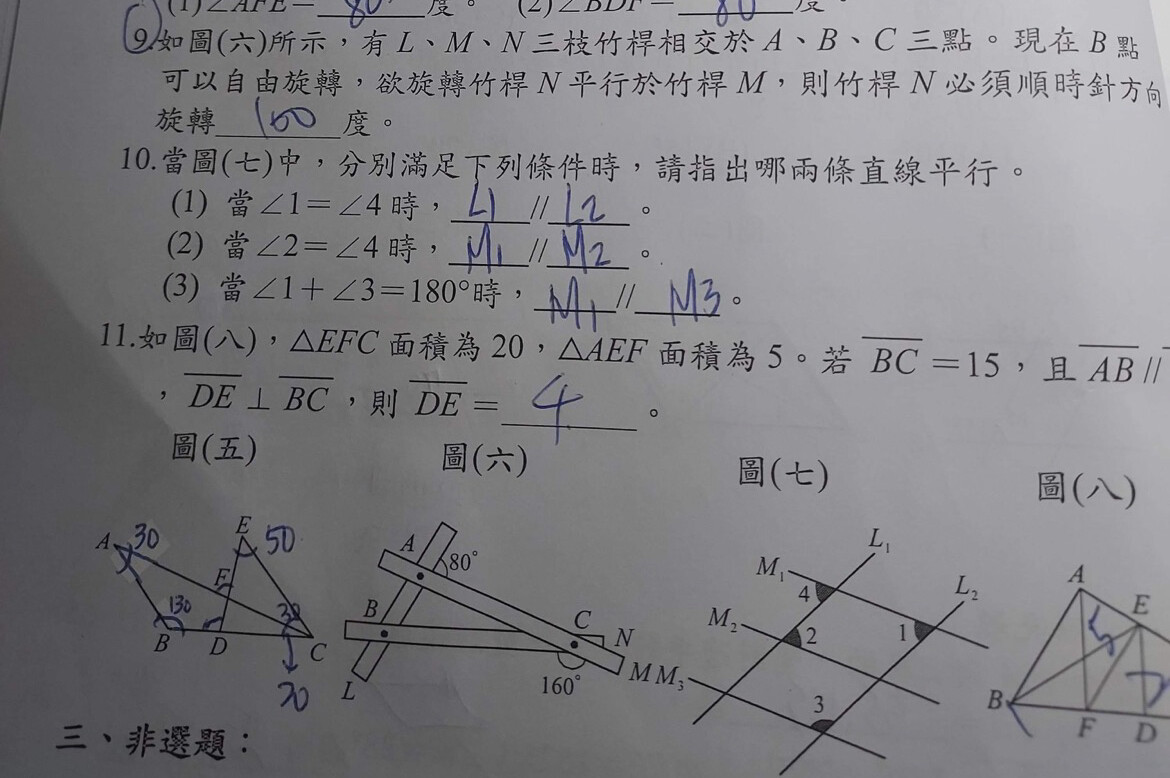 (1)∠AFE= 80 度。 (2)∠BDF= 80 度。
9.如圖(六)所示，有 L、M、N 三枝竹桿相交於 A、B、C 三點。現在 B 點
可以自由旋轉，欲旋轉竹桿 N 平行於竹桿 M，則竹桿 N 必須順時針方向
旋轉 160 度。
10.當圖(七)中，分別滿足下列條件時，請指出哪兩條直線平行。
(1) 當∠1=∠4 時，L1 // L2。
(2) 當∠2=∠4 時，M1 // M2。
(3) 當∠1+∠3=180°時，M1 // M3。
11.如圖(八)，△EFC 面積為 20，△AEF 面積為 5。若 BC =15，且 AB //
，DE ⊥ BC，則 DE = 4。
圖(五) 圖(六) 圖(七) 圖(八)
A 30 E 50 F 130 B D C
A 80° B C N L 160° M
L1 M1 4 L2 M2 2 1 M3 3
A E B F D
三、非選題：